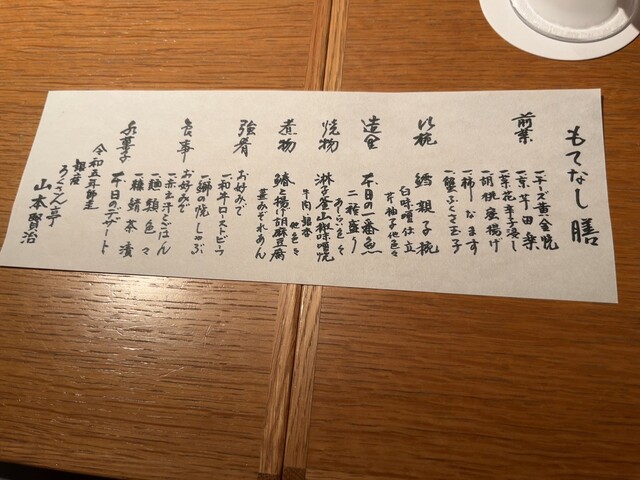 もてなし膳
前菜
一、チーズ黄金焼
一、京芋田楽
一、菜花辛子浸し
一、胡桃蜜揚げ
一、柿なます
一、蟹ふくさ玉子
吸椀
鱈親子椀
白味噌仕立
芹 柚子 他色々
造里
本日の一番魚
二種盛り
あしらい色々
焼物
淋子釜山椒味噌焼
牛肉 鮑茸
他色々
煮物
鰆と揚げ胡麻豆腐
蓋みぞれあん
強肴
お好みで
一、和牛ローストビーフ
一、鰤の悦しゃぶ
食事
お好みで
一、赤土牛とごはん
一、麺類色々
一、鯖茶漬
水菓子
本日のデザート
令和五年師走
銀座
ろくさん亭
山本賢治